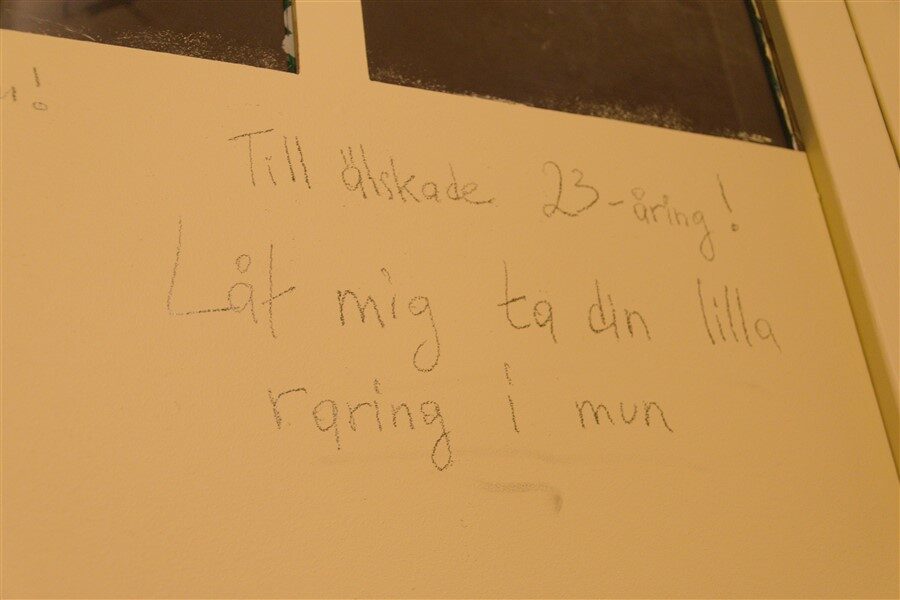 !
Till älskade 23-åring!
Låt mig ta din lilla
raring i mun